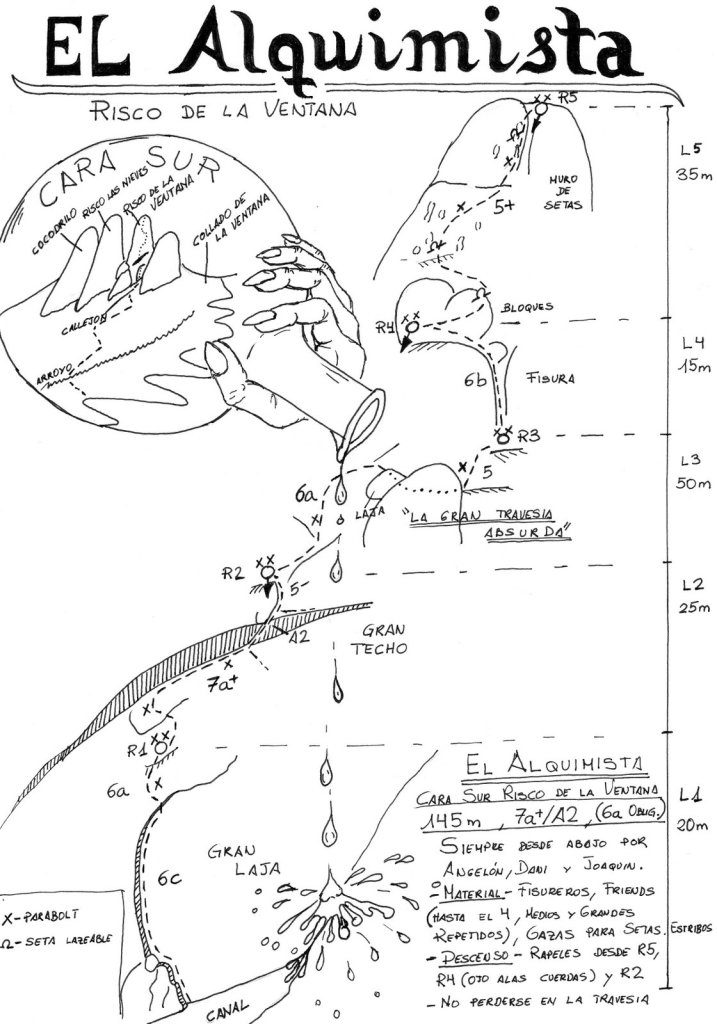 EL Alquimista
RISCO DE LA VENTANA
CARA SUR
COCODRILO
RISCO LAS NIEVES
RISCO DE LA
VENTANA
COLLADO DE
LA VENTANA
CALLEJON
ARROYO
R5
L5
35m
MURO
DE
SETAS
5+
BLOQUES
R4
L4
15m
6b
FISURA
R3
L3
50m
5
6a
LAJA
"LA GRAN TRAVESIA
ABSURDA"
R2
5-
L2
25m
A2
GRAN
TECHO
7a+
R1
6a
L1
20m
6c
GRAN
LAJA
CANAL
X-PARABOLT
Ω-SETA LAZEABLE
EL ALQUIMISTA
CARA SUR RISCO DE LA VENTANA
145m, 7a+/A2, (6a OBLIG.)
SIEMPRE DESDE ABAJO POR
ANGELÓN, DANI Y JOAQUIN.
- MATERIAL - FISUREROS, FRIENDS
(HASTA EL 4, MEDIOS Y GRANDES
REPETIDOS), GAZAS PARA SETAS. ESTRIBOS
- DESCENSO - RAPELES DESDE R5,
R4 (OJO ALAS CUERDAS) Y R2
- NO PERDERSE EN LA TRAVESIA